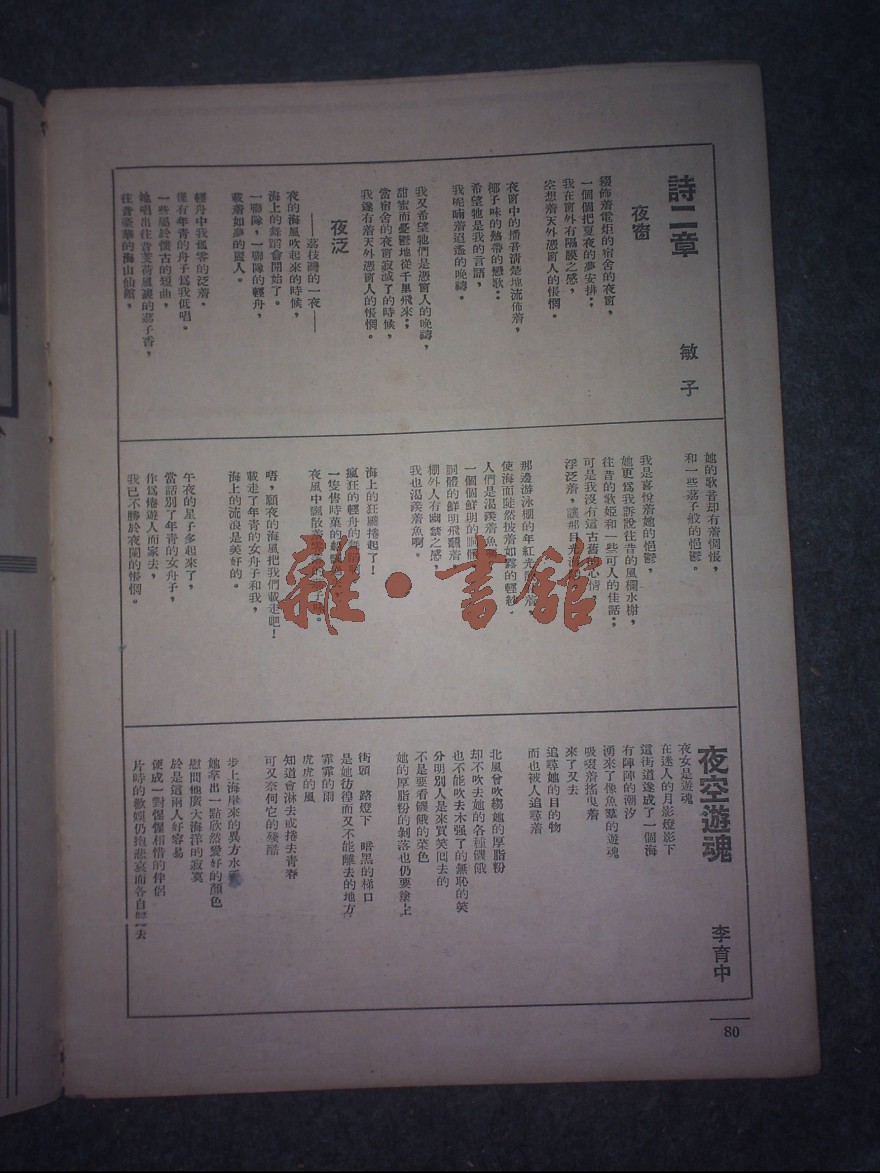 詩二章
敏子
夜窗
綴佈着電炬的宿舍的夜窗，
一個個把夏夜的夢安排：
我在窗外有隔膜之感，
空想着天外憑窗人的悵惘。
夜窗中的播音清楚地流佈着，
椰子味的熱帶的戀歌：
希望牠是我的言語，
我呢喃着迢遙的晚禱。
我又希望牠們是憑窗人的晚禱，
甜蜜而憂鬱地從千里飛來；
當宿舍的夜窗寂滅了的時候，
我遂有着天外憑窗人的悵惘。
夜泛
——荔枝灣的一夜——
夜的海風吹起來的時候，
海上的舞蹈會開始了。
一聯隊，一聯隊的輕舟，
載着如夢的麗人。
輕舟中我孤零的泛着，
僅有年青的舟子爲我低唱。
一些屬於懷古的短曲，
她唱出往昔芰荷風裏的荔子香，
往昔豪華的海山仙館，
她的歌音却有着惆悵，
和一些荔子般的悒鬱。
我是喜悅着她的悒鬱，
她更爲我訴說往昔的風欄水榭，
往昔的歌姬和一些可人的佳話；
可是我沒有這古舊的心情，
浮泛着，讓那目光
那邊游泳棚的年紅光
使海面陡然披着如霧的輕紗，
人們是渴羨着魚
一個個鮮明的胴體
胴體的鮮明飛翻着
棚外人有幽禁之感，
我也渴羨着魚啊。
海上的狂飈捲起了！
瘋狂的輕舟的舞
一隻售時菓的輕
夜風中飄散着
唔，願夜的海風把我們載走吧！
載走了年青的女舟子和我，
海上的流浪是美好的。
午夜的星子多起來了，
當話別了年青的女舟子，
作爲倦遊人而家去，
我已不勝於夜闌的悵惘。
夜空遊魂
李育中
夜女是遊魂
在迷人的月影燈影下
這街道遂成了一個海
有陣陣的潮汐
湧來了像魚羣的遊魂
吸啜着搖曳着
來了又去
追尋她的目的物
而也被人追尋着
北風曾吹縐她的厚脂粉
却不吹去她的各種饑餓
也不能吹去木强了的無恥的笑
分明別人是來買笑回去的
不是要看饑餓的菜色
她的厚脂粉的剝落也仍要塗上
街頭　路燈下　暗黑的梯口
是她彷徨而又不能離去的地方
霏霏的雨
虎虎的風
知道會淋去或捲去青春
可又奈何它的殘酷
步上海岸來的異方水
她拿出一點欣然愛好的顏色
慰問他廣大海洋的寂寞
於是這兩人好容易
便成一對惺惺相惜的伴侶
片時的歡娛仍抱悲哀而各自歸去
80
雜·書舘